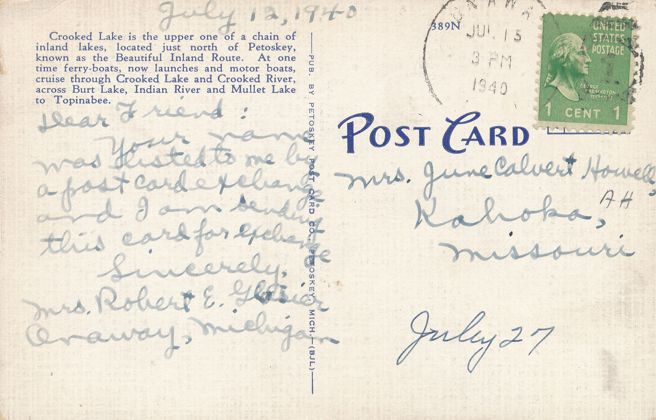 July 12, 1940
Crooked Lake is the upper one of a chain of
inland lakes, located just north of Petoskey,
known as the Beautiful Inland Route. At one
time ferry-boats, now launches and motor boats,
cruise through Crooked Lake and Crooked River,
across Burt Lake, Indian River and Mullet Lake
to Topinabee.
Dear Friend:
Your name
was listed to me by
a post card exchange
and I am sending
this card for exchange
Sincerely,
Mrs. Robert E.
Onaway, Michigan
PUB. BY PETOSKEY POST CARD CO., PETOSKEY, MICH.—(BJL)
389N
ONAWAY
JUL 15
3 PM
1940
UNITED
STATES
POSTAGE
GEORGE
WASHINGTON
1 CENT 1
POST CARD
Mrs. June Calvert Howell,
AH
Kahoka,
Missouri
July 27